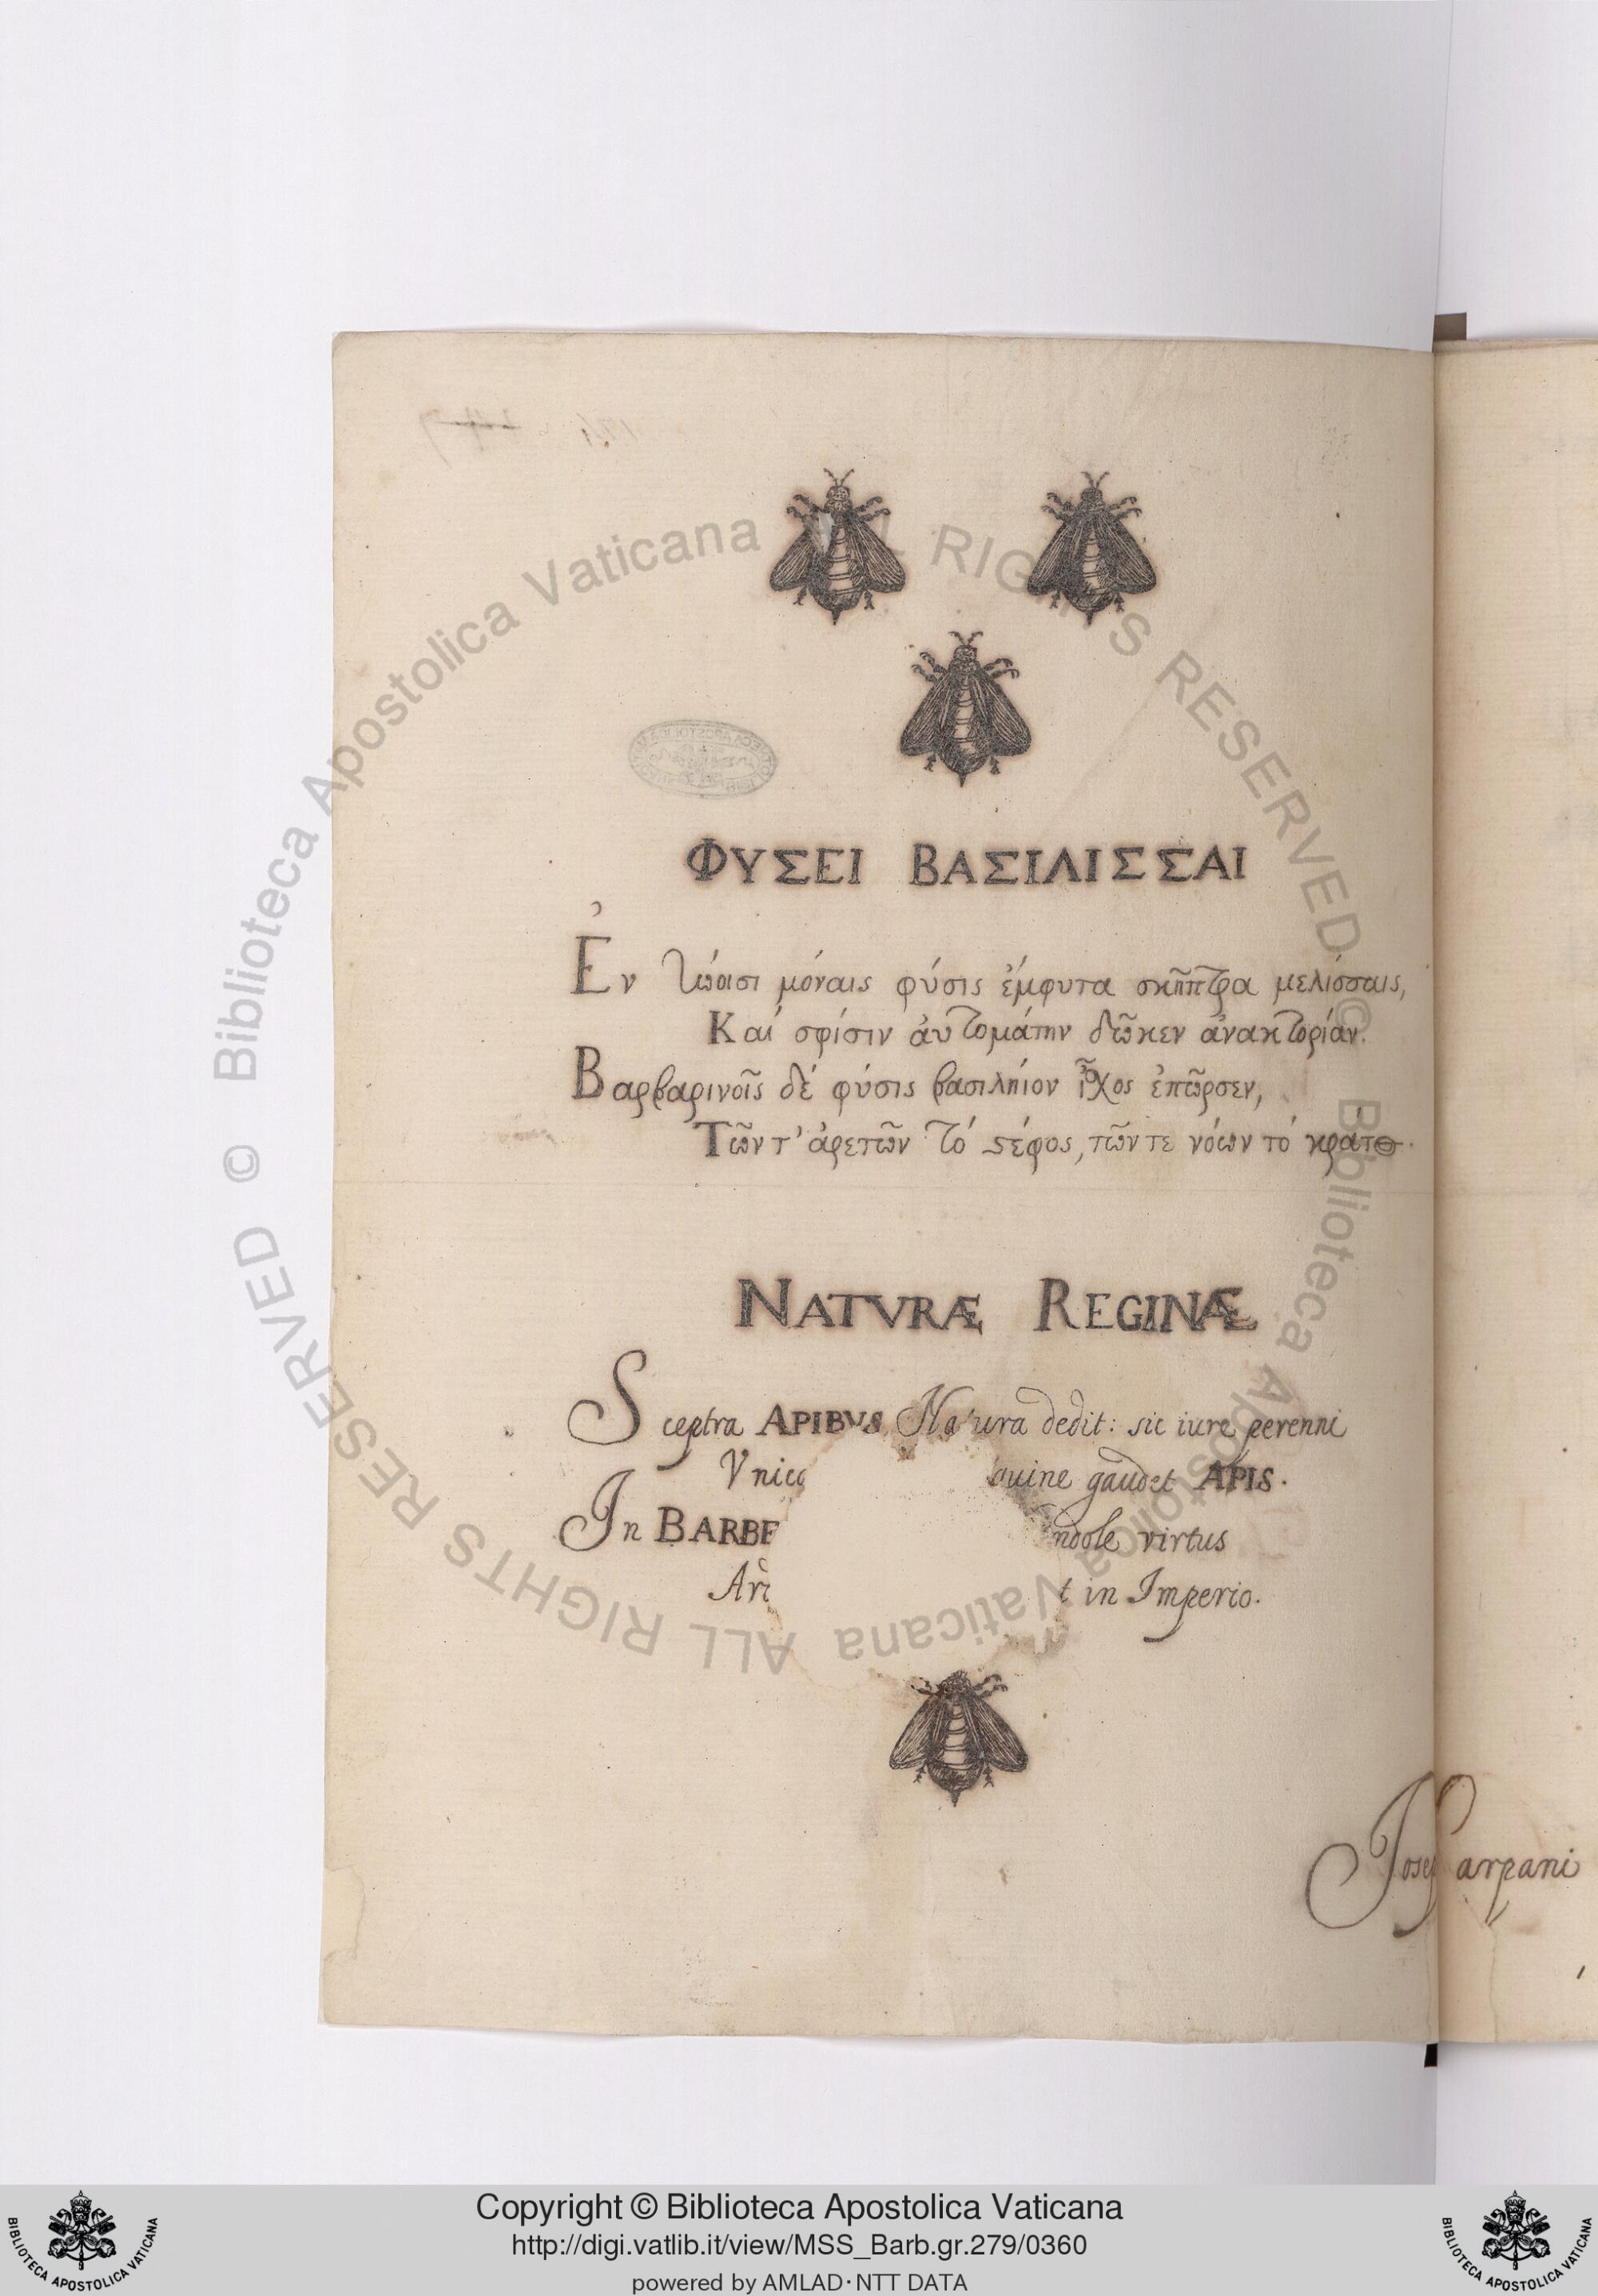 ΦΥΣΕΙ ΒΑΣΙΛΙΣΣΑΙ
Ἐν ζώοισι μόναις φύσις ἐμφυτα σκῆπτρα μελίσσαις,
Καί σφίσιν ἀυτομάτην δῶκεν ἀνακτορίαν.
Βαρβαρινοῖς δέ φύσις βασιλήιον ἦχος ἐπῶρσεν,
Τῶν τ' ἀρετῶν τό στέφος, τῶν τε νόων τό κρατος.
NATVRÆ REGINÆ
Sceptra APIBVS Natura dedit: sic iure perenni
Vnico uine gaudet APIS.
In BARBE ndole virtus
Ari t in Imperio.
Jose arpani
Biblioteca Apostolica Vaticana ALL RIGHTS RESERVED ©
Biblioteca Apostolica Vaticana ALL RIGHTS RESERVED ©
Copyright © Biblioteca Apostolica Vaticana
http://digi.vatlib.it/view/MSS_Barb.gr.279/0360
powered by AMLAD·NTT DATA
BIBLIOTECA APOSTOLICA VATICANA
BIBLIOTECA APOSTOLICA VATICANA